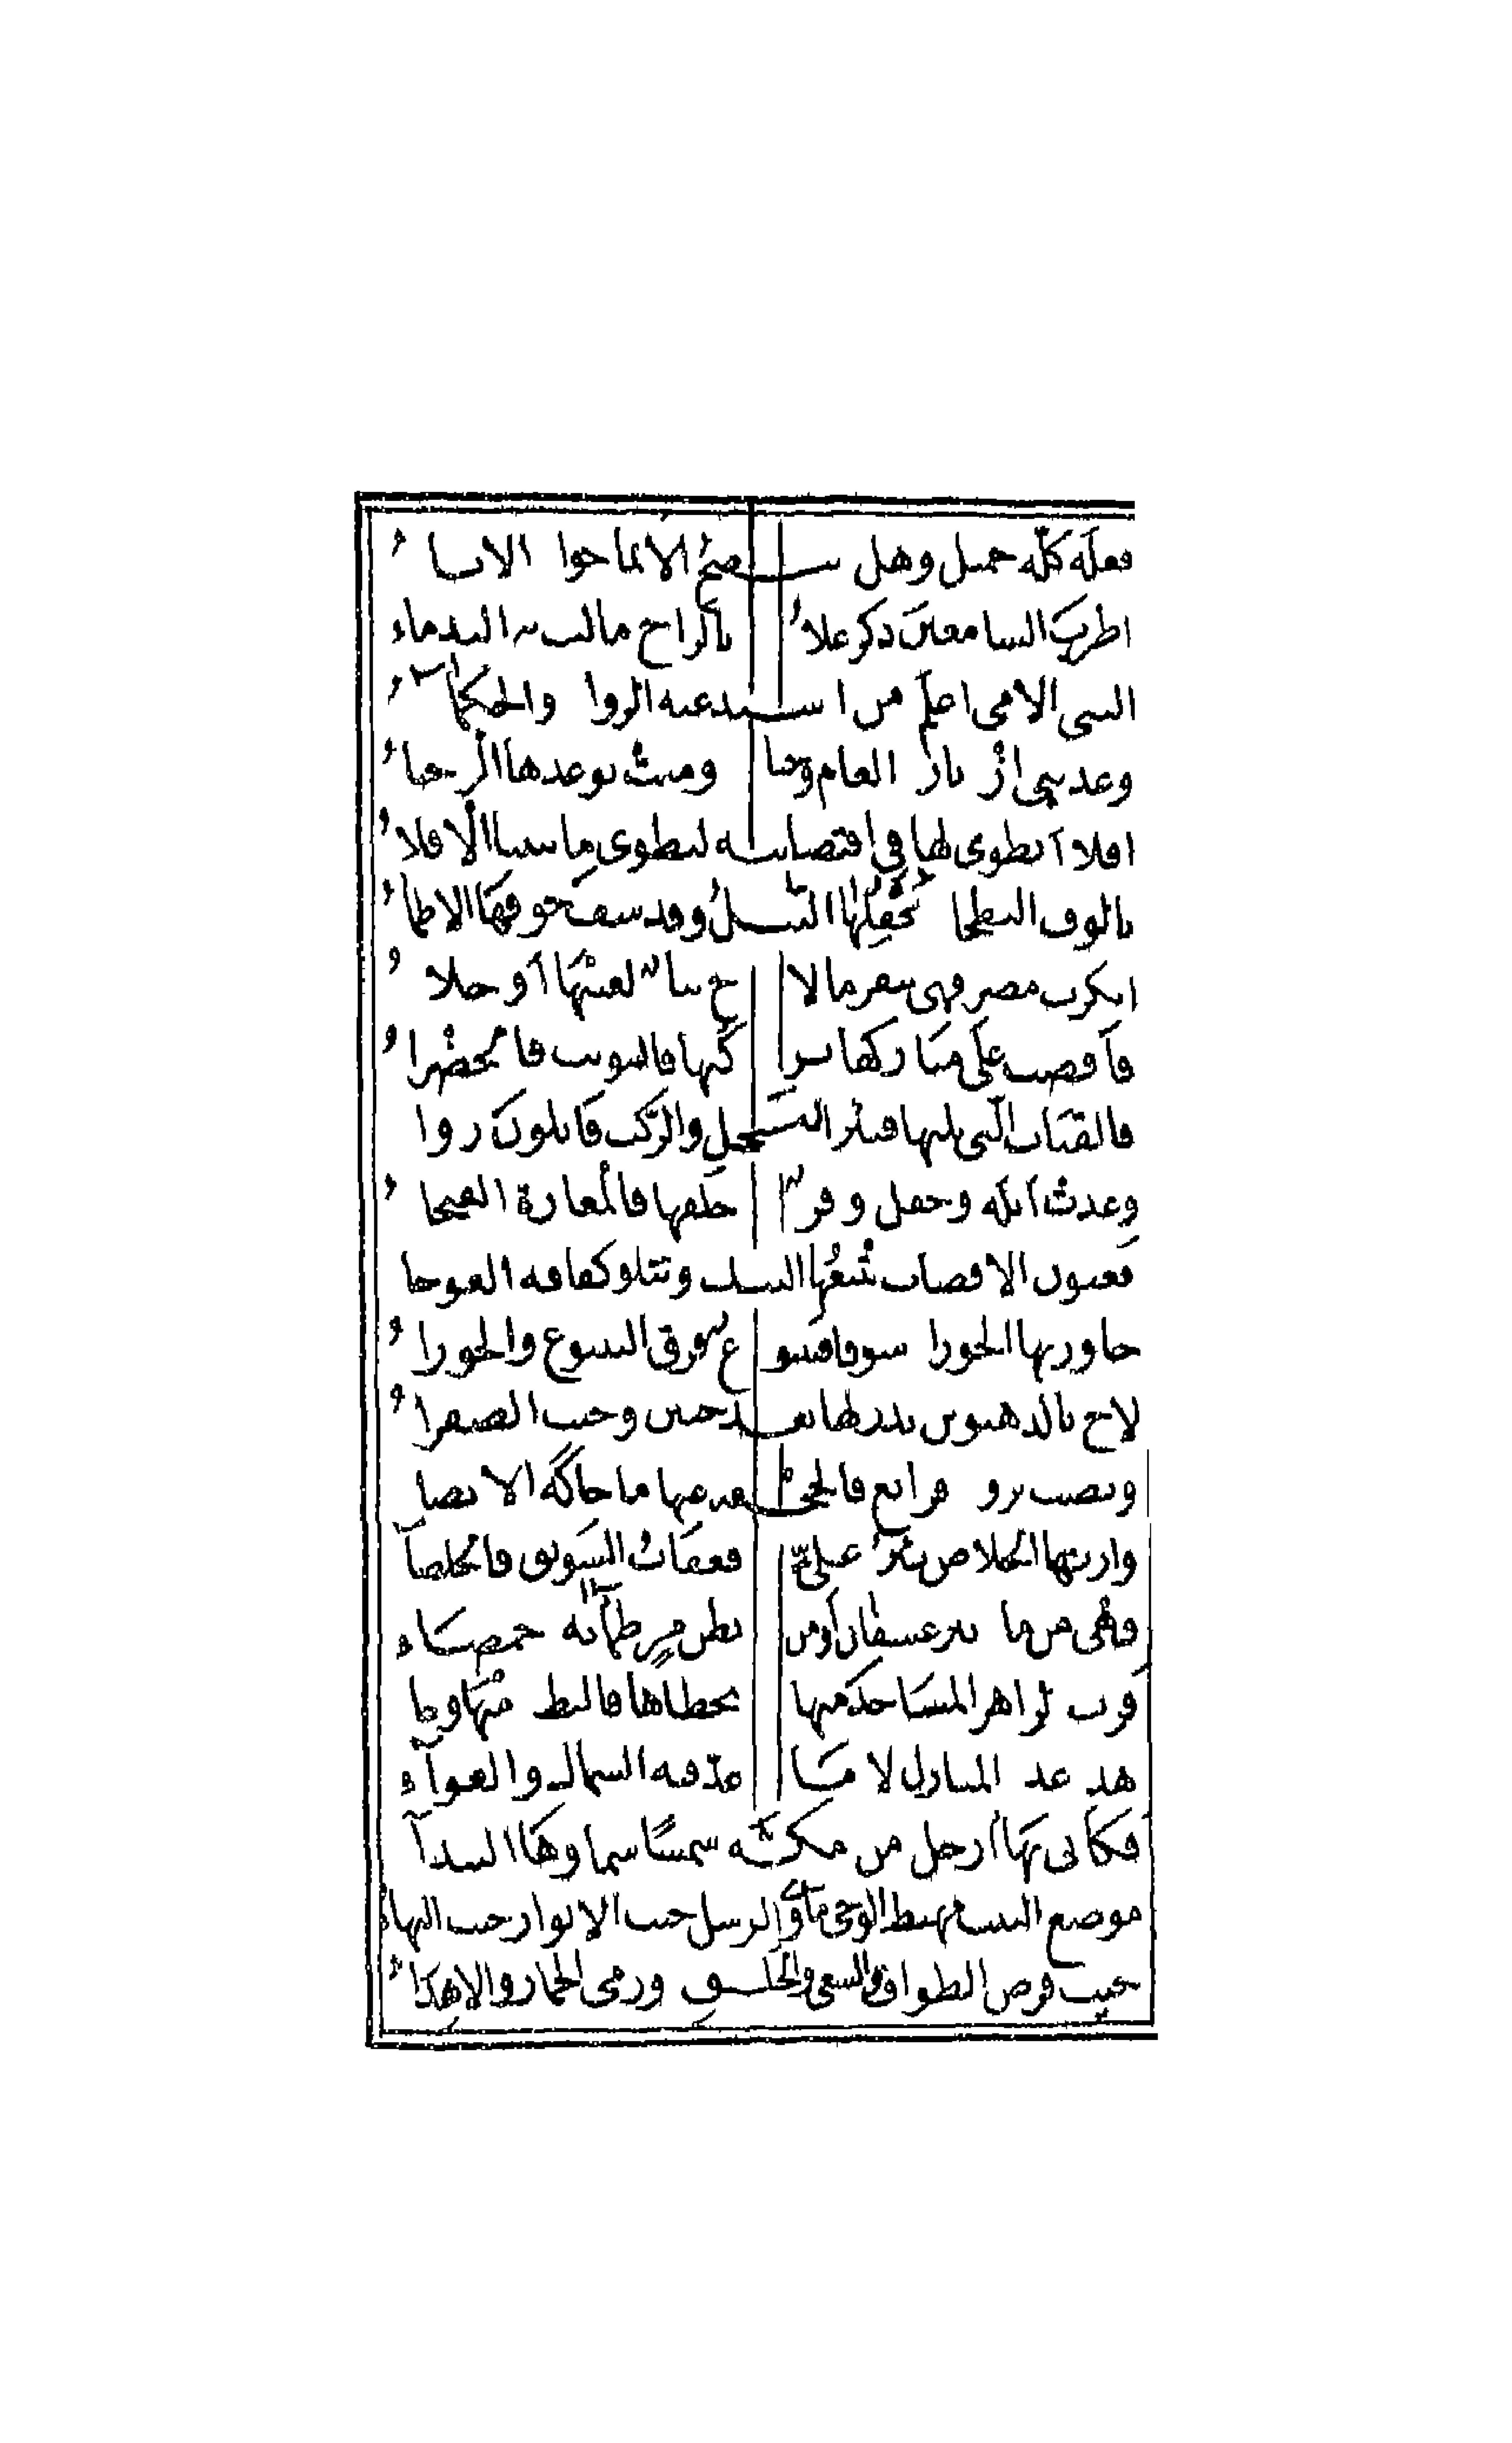 فعله كله جميل وهل ينضح الا بما حواه الاناء
اطرب السامعين ذكر علاه يا لراح مالت به الندماء
النبي الامي اعلم من اسند عنه الرواة والحكماء
وعدتني ازدياره العام وجناء ومنت بوعدها الوجناء
افلا انطوي لها في اقتضائيه لتطوى ما بيننا الافلاء
بالوف البطحاء يجفلها النيل وقد شف جوفها الاظماء
انكرت مصر فهي تنفر ما لاح بناء لعينها او خلاء
فاقضت على مباركها بركتها فالبويب فالخضراء
فالقباب التي تليها فبئر النخل والركب قائلون رواء
وغدت ايلة وحقل وقر خلفها فالمغارة الفيحاء
فعيون الاقصاب يتبعها النبك وتتلو كفافة العوجاء
حاورتها الحوراء شوقا فينبوع فرق الينبوع والحوراء
لاح بالدهنوين بدر لها بعد حنين وحنت الصفراء
ونضت بزوة فرابغ فالجحفة عنها ما حاكه الانضاء
وارتها الخلاص بئر علي فعقاب السويق فالخلصاء
فهي من ماء بئر عسفان او من بطن مر ظمآنة خمصاء
قرب الزاهر المساجد منها بخطاها فالبطء منها وحاء
هذه عدة المنازل لا ما عد فيه السماك والعواء
فكاني بها ارحل من مكة شمسا سماؤها البيداء
موضع البيت مهبط الوحي ماوى الرسل حيث الانوار حيث البهاء
حيث فرض الطواف والسعي والحلق ورمي الجمار والاهداء